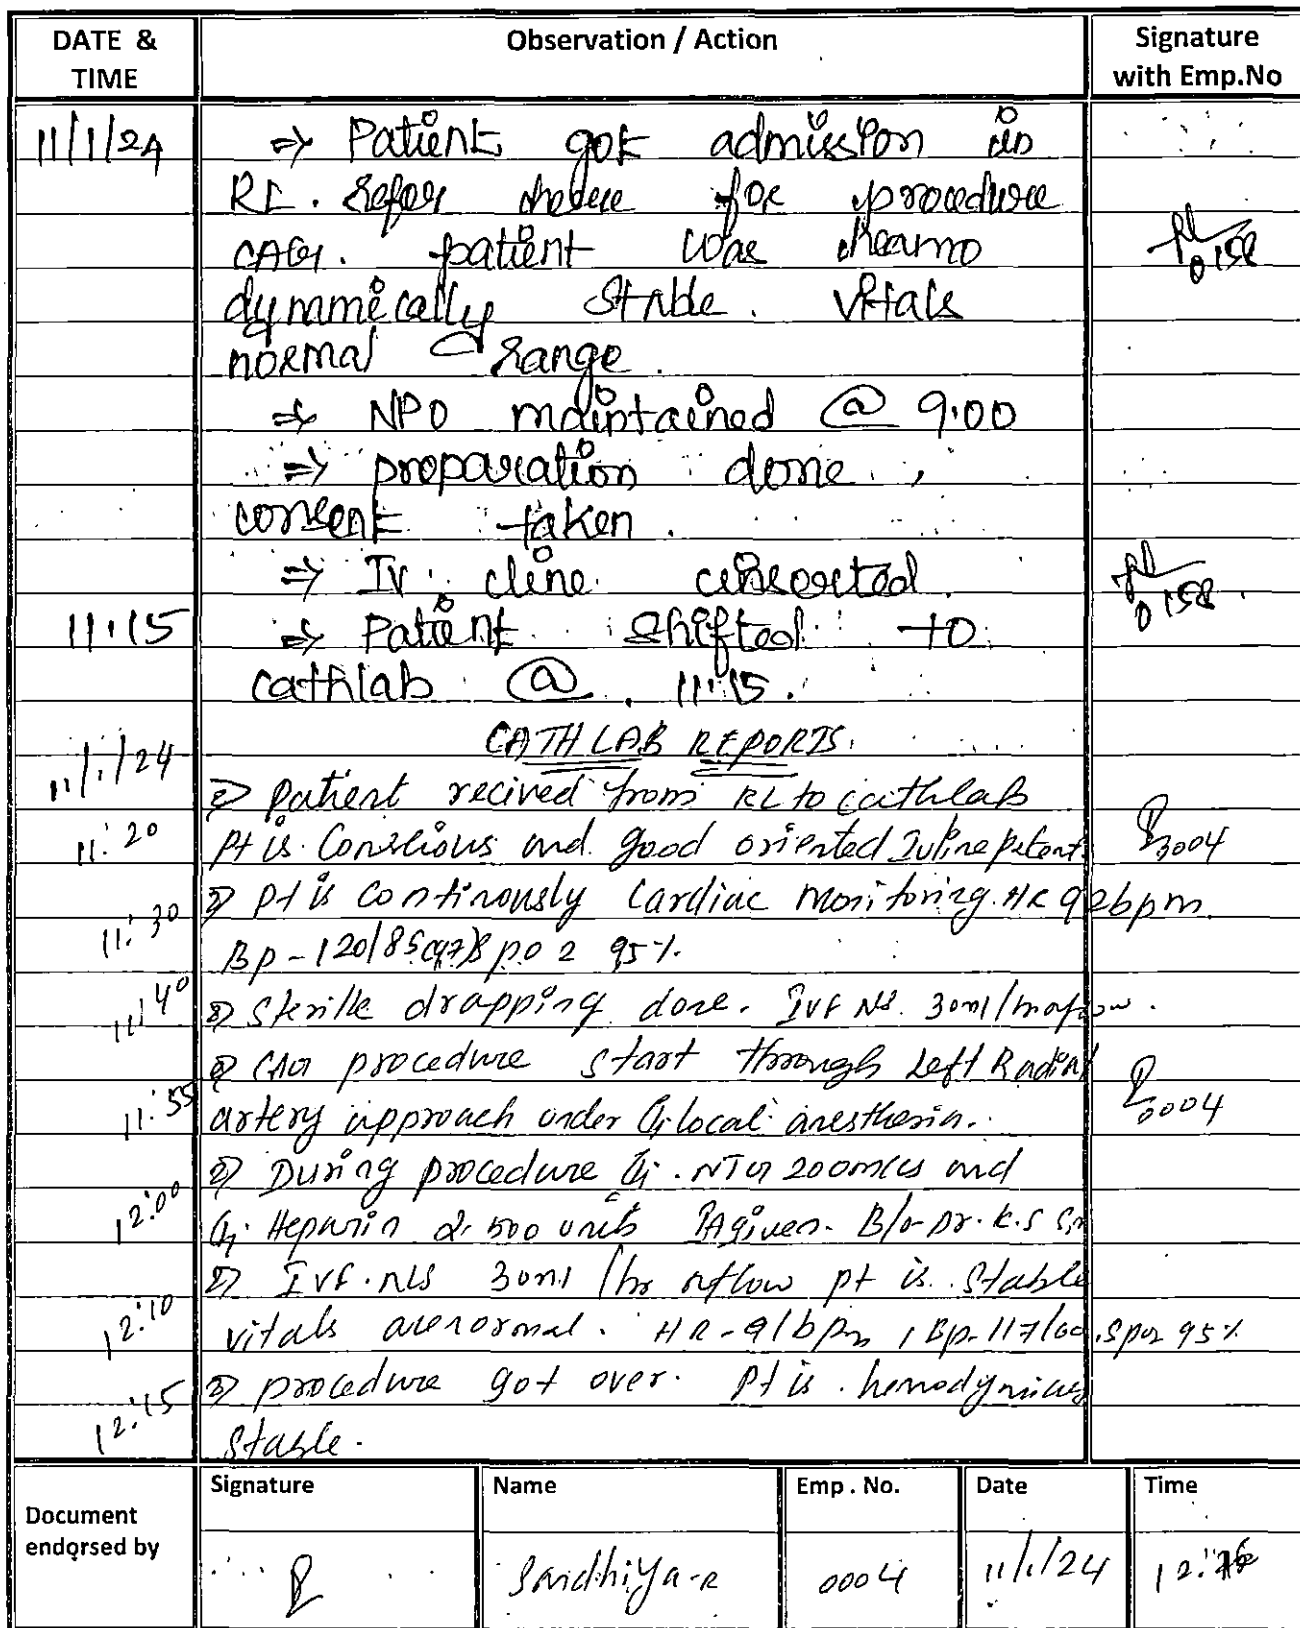 DATE & TIME
Observation / Action
Signature with Emp.No
11/1/24
⇒ Patient got admission in
RL. Refer there for procedure
CAG. patient was heamo
dynamically stable. vitals
normal range.
0158
⇒ NPO maintained @ 9.00
⇒ preparation done,
consent taken.
⇒ IV line inserted.
0158
11.15
⇒ Patient shifted to
cathlab @ 11.15.
CATH LAB REPORTS.
11/1/24
⇒ Patient recived from RL to cathlab
11:20
Pt is Conscious and good oriented Ivline patent
0004
11:30
⇒ Pt is continously Cardiac Monitoring. HR 92bpm
Bp-120/85(97) Spo2 95%.
11:40
⇒ Sterile drapping done. IVF NS. 30ml/hr
11:55
⇒ CAG procedure start through Left Radial
artery approach under Inj. local anesthesia.
0004
12:00
⇒ During procedure Inj. NTG 200mics and
Inj. Heparin 2,500 units IA given. B/o Dr. K.S
⇒ IVF. NS 30ml/hr onflow pt is Stable
12:10
vitals are normal. HR-91bpm, Bp-117/60, Spo2 95%
12:15
⇒ procedure got over. Pt is hemodynamics
Stable.
Document endorsed by
Signature
Name
Emp. No.
Date
Time
Sandhiya.R
0004
11/1/24